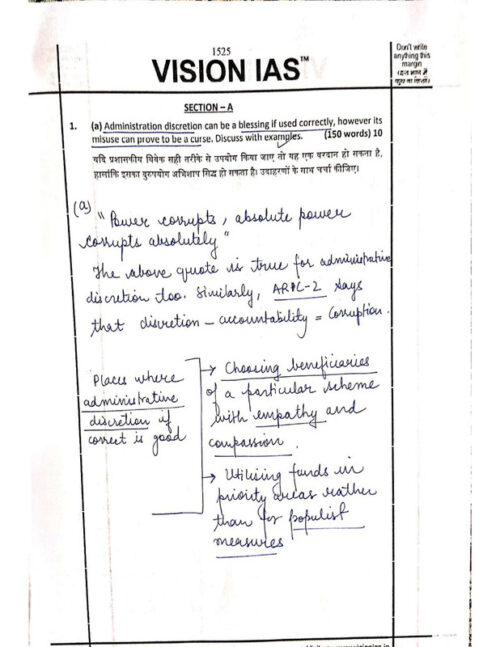 1525
VISION IAS™
Don't write
anything this
margin
SECTION – A
1. (a) Administration discretion can be a blessing if used correctly, however its
misuse can prove to be a curse. Discuss with examples. (150 words) 10
यदि प्रशासकीय विवेक सही तरीके से उपयोग किया जाए तो यह एक वरदान हो सकता है,
हालांकि इसका दुरुपयोग अभिशाप सिद्ध हो सकता है। उदाहरणों के साथ चर्चा कीजिए।
(a)
"Power corrupts, absolute power
corrupts absolutely"
The above quote is true for administrative
discretion too. Similarly, ARC-2 says
that discretion – accountability = Corruption.
Places where
administrative
discretion if
correct is good
→ Choosing beneficiaries
of a particular scheme
with empathy and
compassion.
→ Utilising funds in
priority areas rather
than for populist
measures